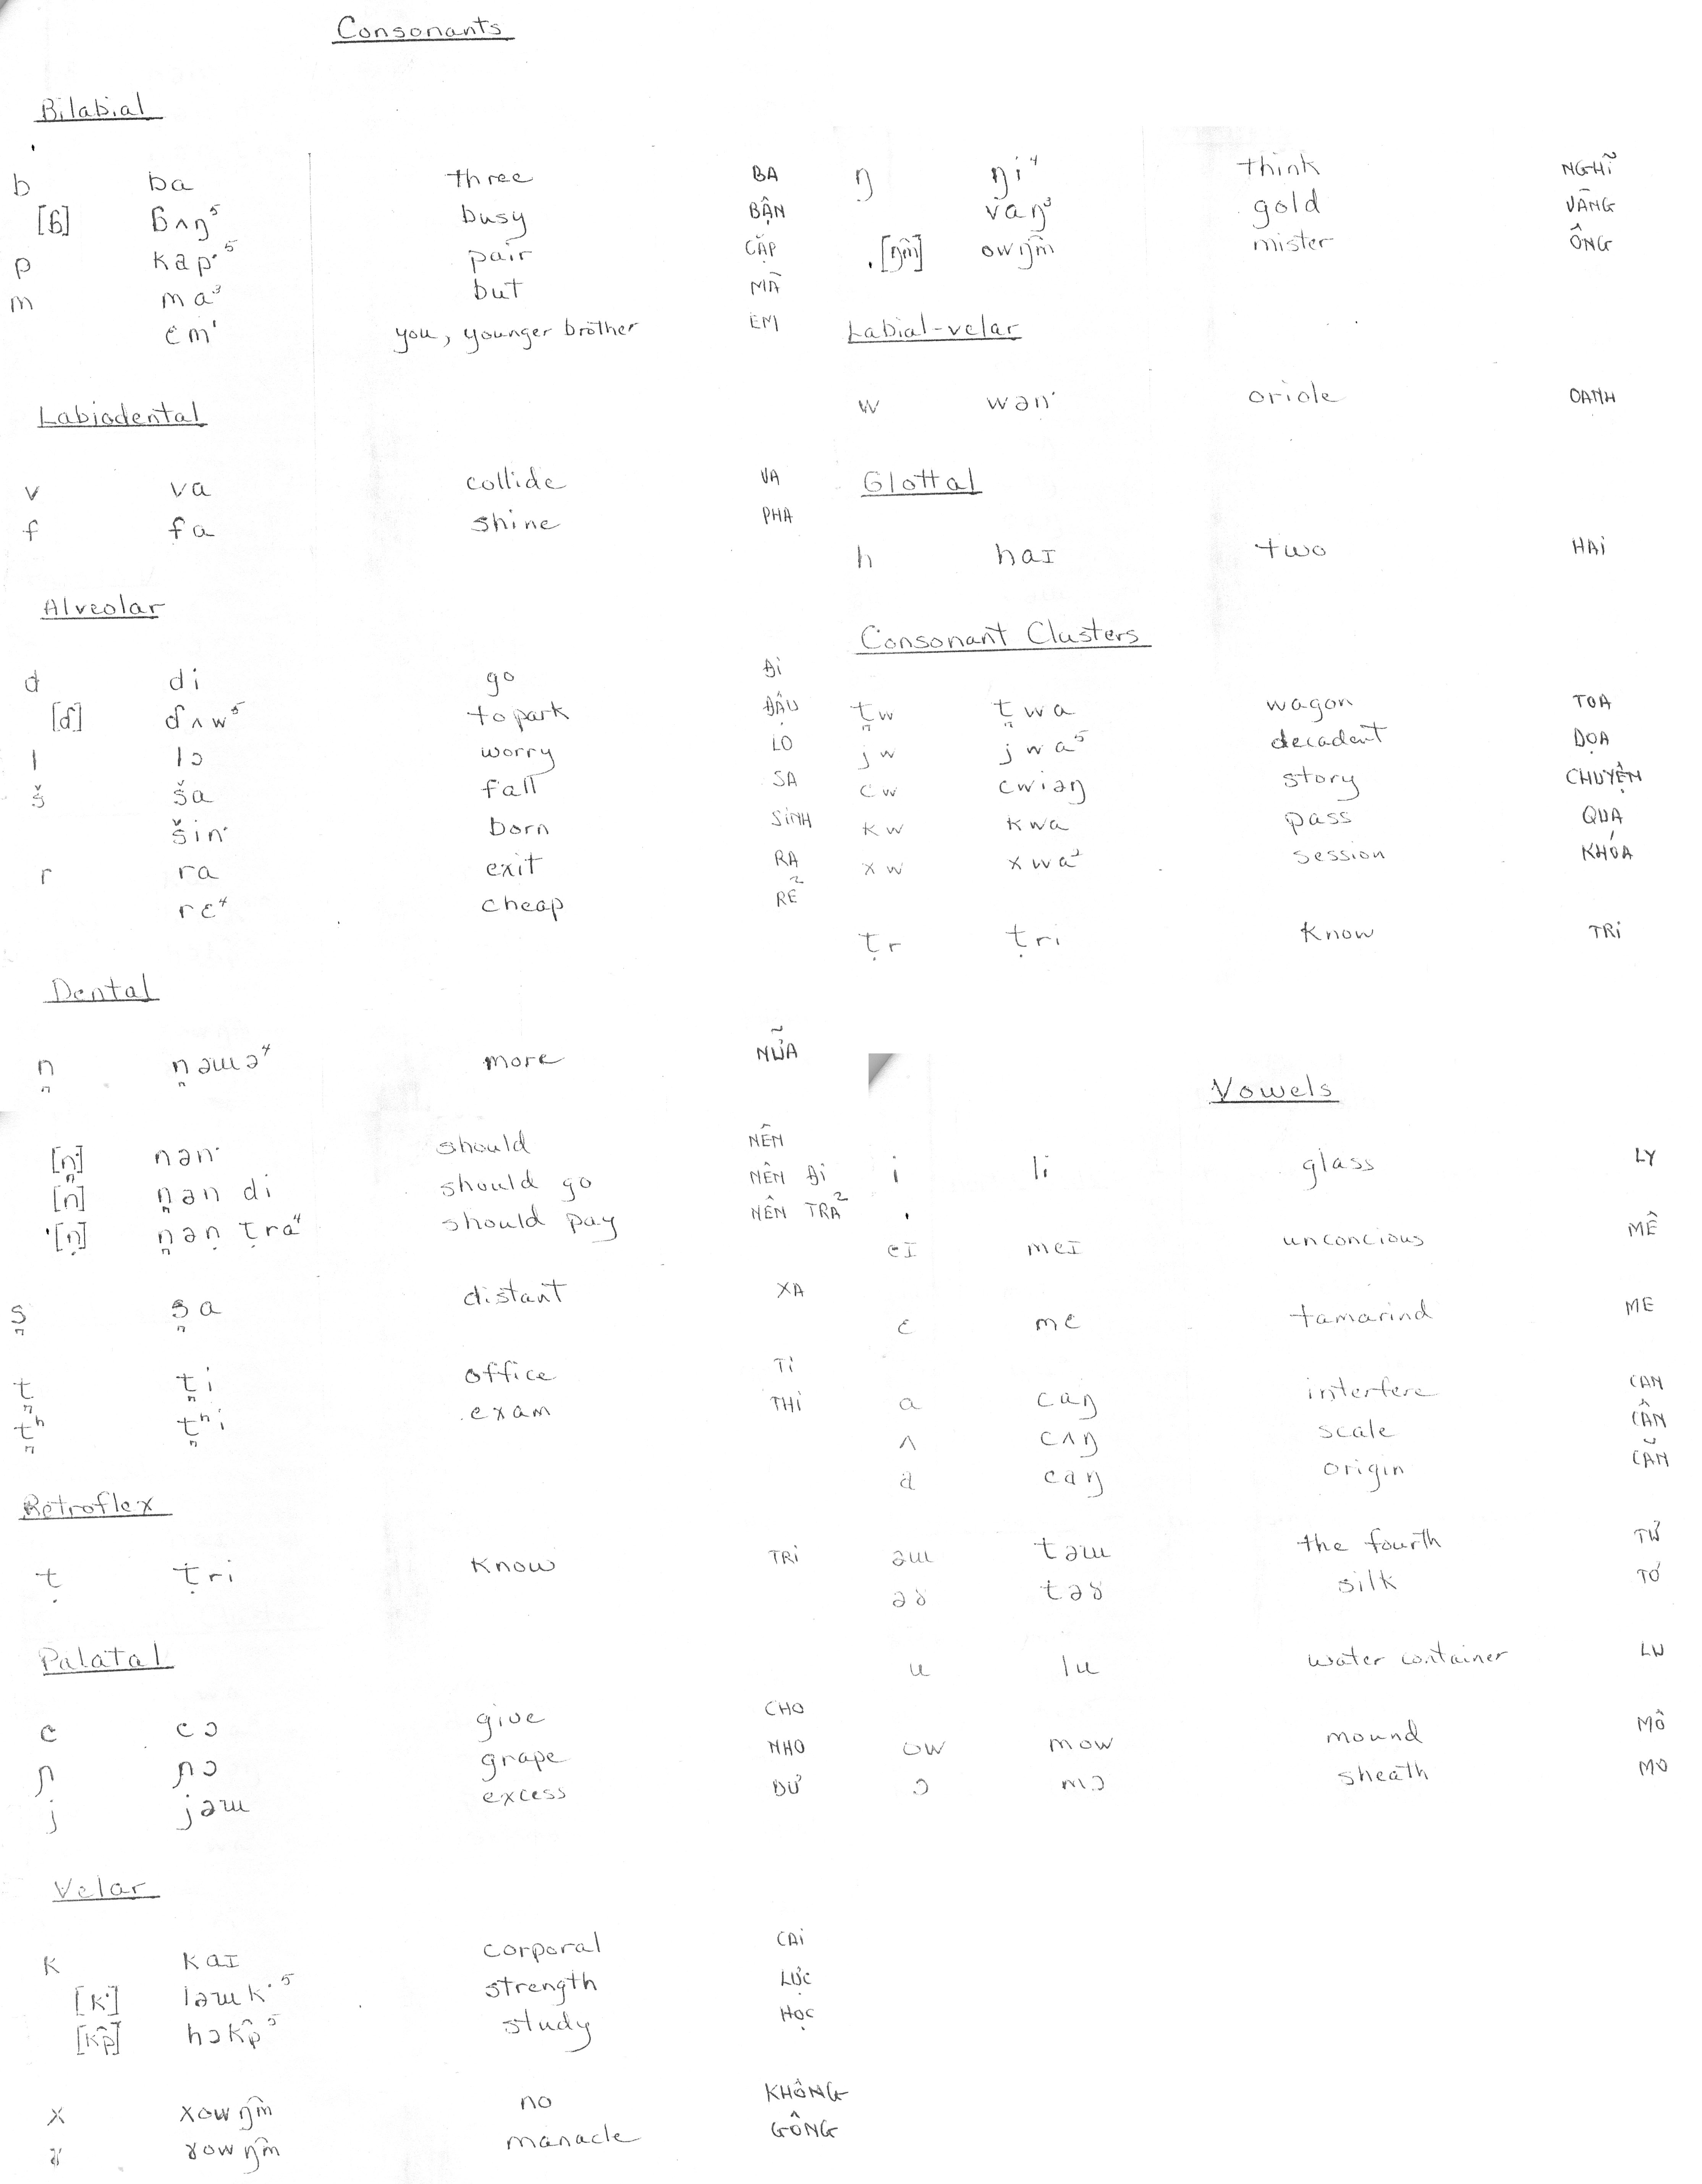 Consonants
Bilabial
b ba three BA
[ɓ] ɓʌŋ⁵ busy BẬN
p kap˙⁵ pair CẶP
m ma³ but MÀ
ɛm¹ you, younger brother EM
Labiodental
v va collide VA
f fa shine PHA
Alveolar
d di go ĐI
[ɗ] ɗʌw⁵ to park ĐẬU
l lɔ worry LO
š ša fall SA
šin˙ born SINH
r ra exit RA
rɛ⁴ cheap RẺ
Dental
n̪ n̪əɯə⁴ more NỮA
[n̪˙] nən˙ should NÊN
[n] n̪ən di should go NÊN ĐI
[ṇ] n̪əṇ ṭra⁴ should pay NÊN TRẢ
s̪ s̪a distant XA
t̪ t̪i office TI
t̪ʰ t̪ʰi exam THI
Retroflex
ṭ ṭri know TRI
Palatal
c cɔ give CHO
ɲ ɲɔ grape NHO
j jəɯ excess DƯ
Velar
k kaɪ corporal CAI
[k˙] ləɯk˙⁵ strength LỰC
[k͡p] hɔk͡p⁵ study HỌC
x xowŋ͡m no KHÔNG
ɣ ɣowŋ͡m manacle GÔNG
ŋ ŋi⁴ think NGHĨ
vaŋ³ gold VÀNG
[ŋ͡m] owŋ͡m mister ÔNG
Labial-velar
w wən˙ oriole OANH
Glottal
h haɪ two HAI
Consonant Clusters
t̪w t̪wa wagon TOA
jw jwa⁵ decadent DỌA
cw cwiəŋ story CHUYỆN
kw kwa pass QUA
xw xwa² session KHÓA
ṭr ṭri know TRI
Vowels
i li glass LY
eɪ meɪ unconcious MÊ
ɛ mɛ tamarind ME
a caŋ interfere CAN
ʌ cʌŋ scale CÂN
ă căŋ origin CĂN
əɯ təɯ the fourth TƯ
əɤ təɤ silk TƠ
u lu water container LU
ow mow mound MÔ
ɔ mɔ sheath MO